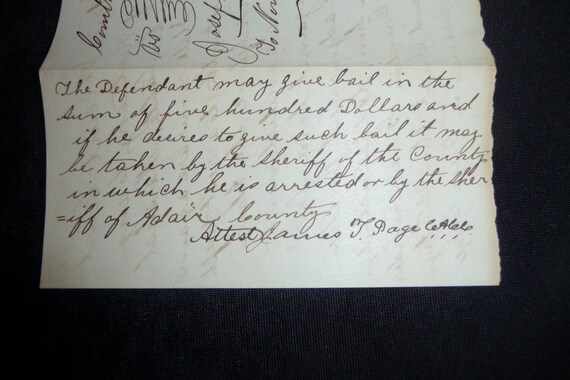 Josep
To Nov
The Defendant may give bail in the
sum of five hundred Dollars and
if he desires to give such bail it may
be taken by the Sheriff of the County
in which he is arrested or by the Sher
=iff of Adair County
Attest James T. Page